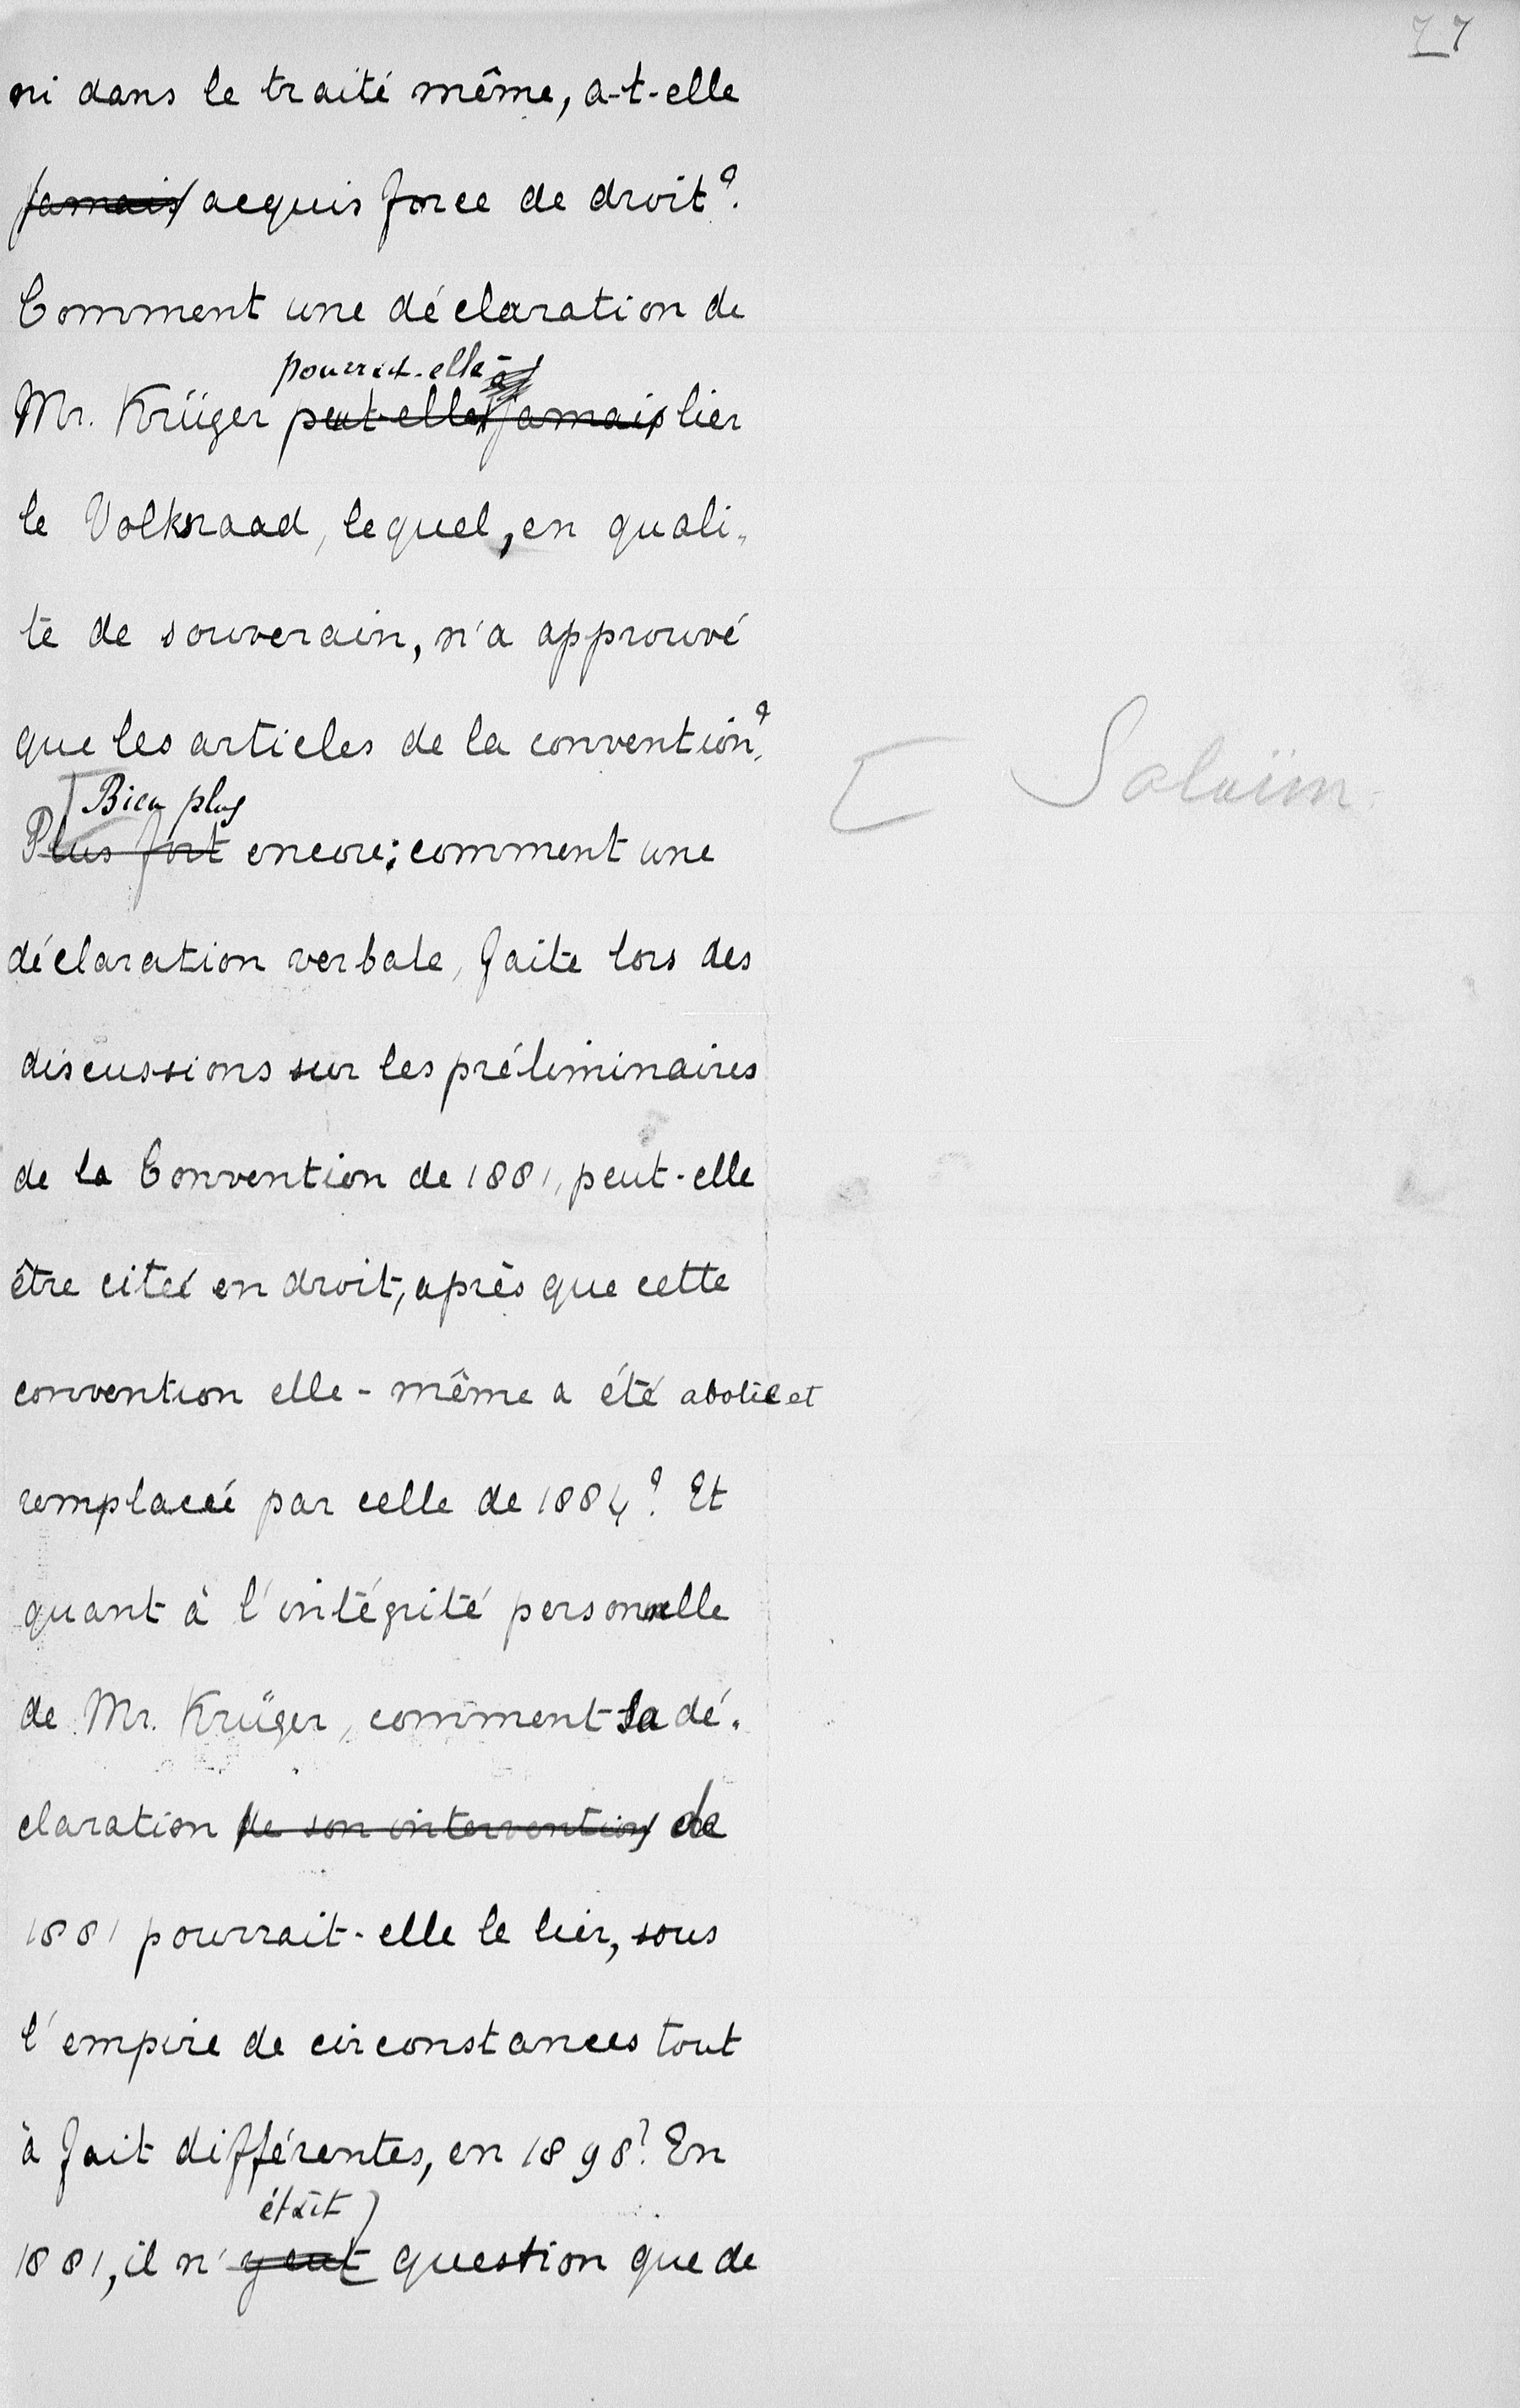 77
ni dans le traité même, a-t-elle
jamais acquis force de droit?
Comment une déclaration de
pourrait-elle
Mr. Krüger peut-elle jamais lier
le Volksraad, lequel, en quali-
té de souverain, n'a approuvé
que les articles de la convention?
[ Bien plus
Plus fort encore; comment une
déclaration verbale, faite lors des
discussions sur les préliminaires
de la Convention de 1881, peut-elle
être citée en droit, après que cette
convention elle-même a été abolie et
remplacée par celle de 1884? Et
quant à l'intégrité personnelle
de Mr. Krüger, comment sa dé-
claration de son intervention de
1881 pourrait-elle le lier, sous
l'empire de circonstances tout
à fait différentes, en 1898? En
était
1881, il n'y eut question que de
[